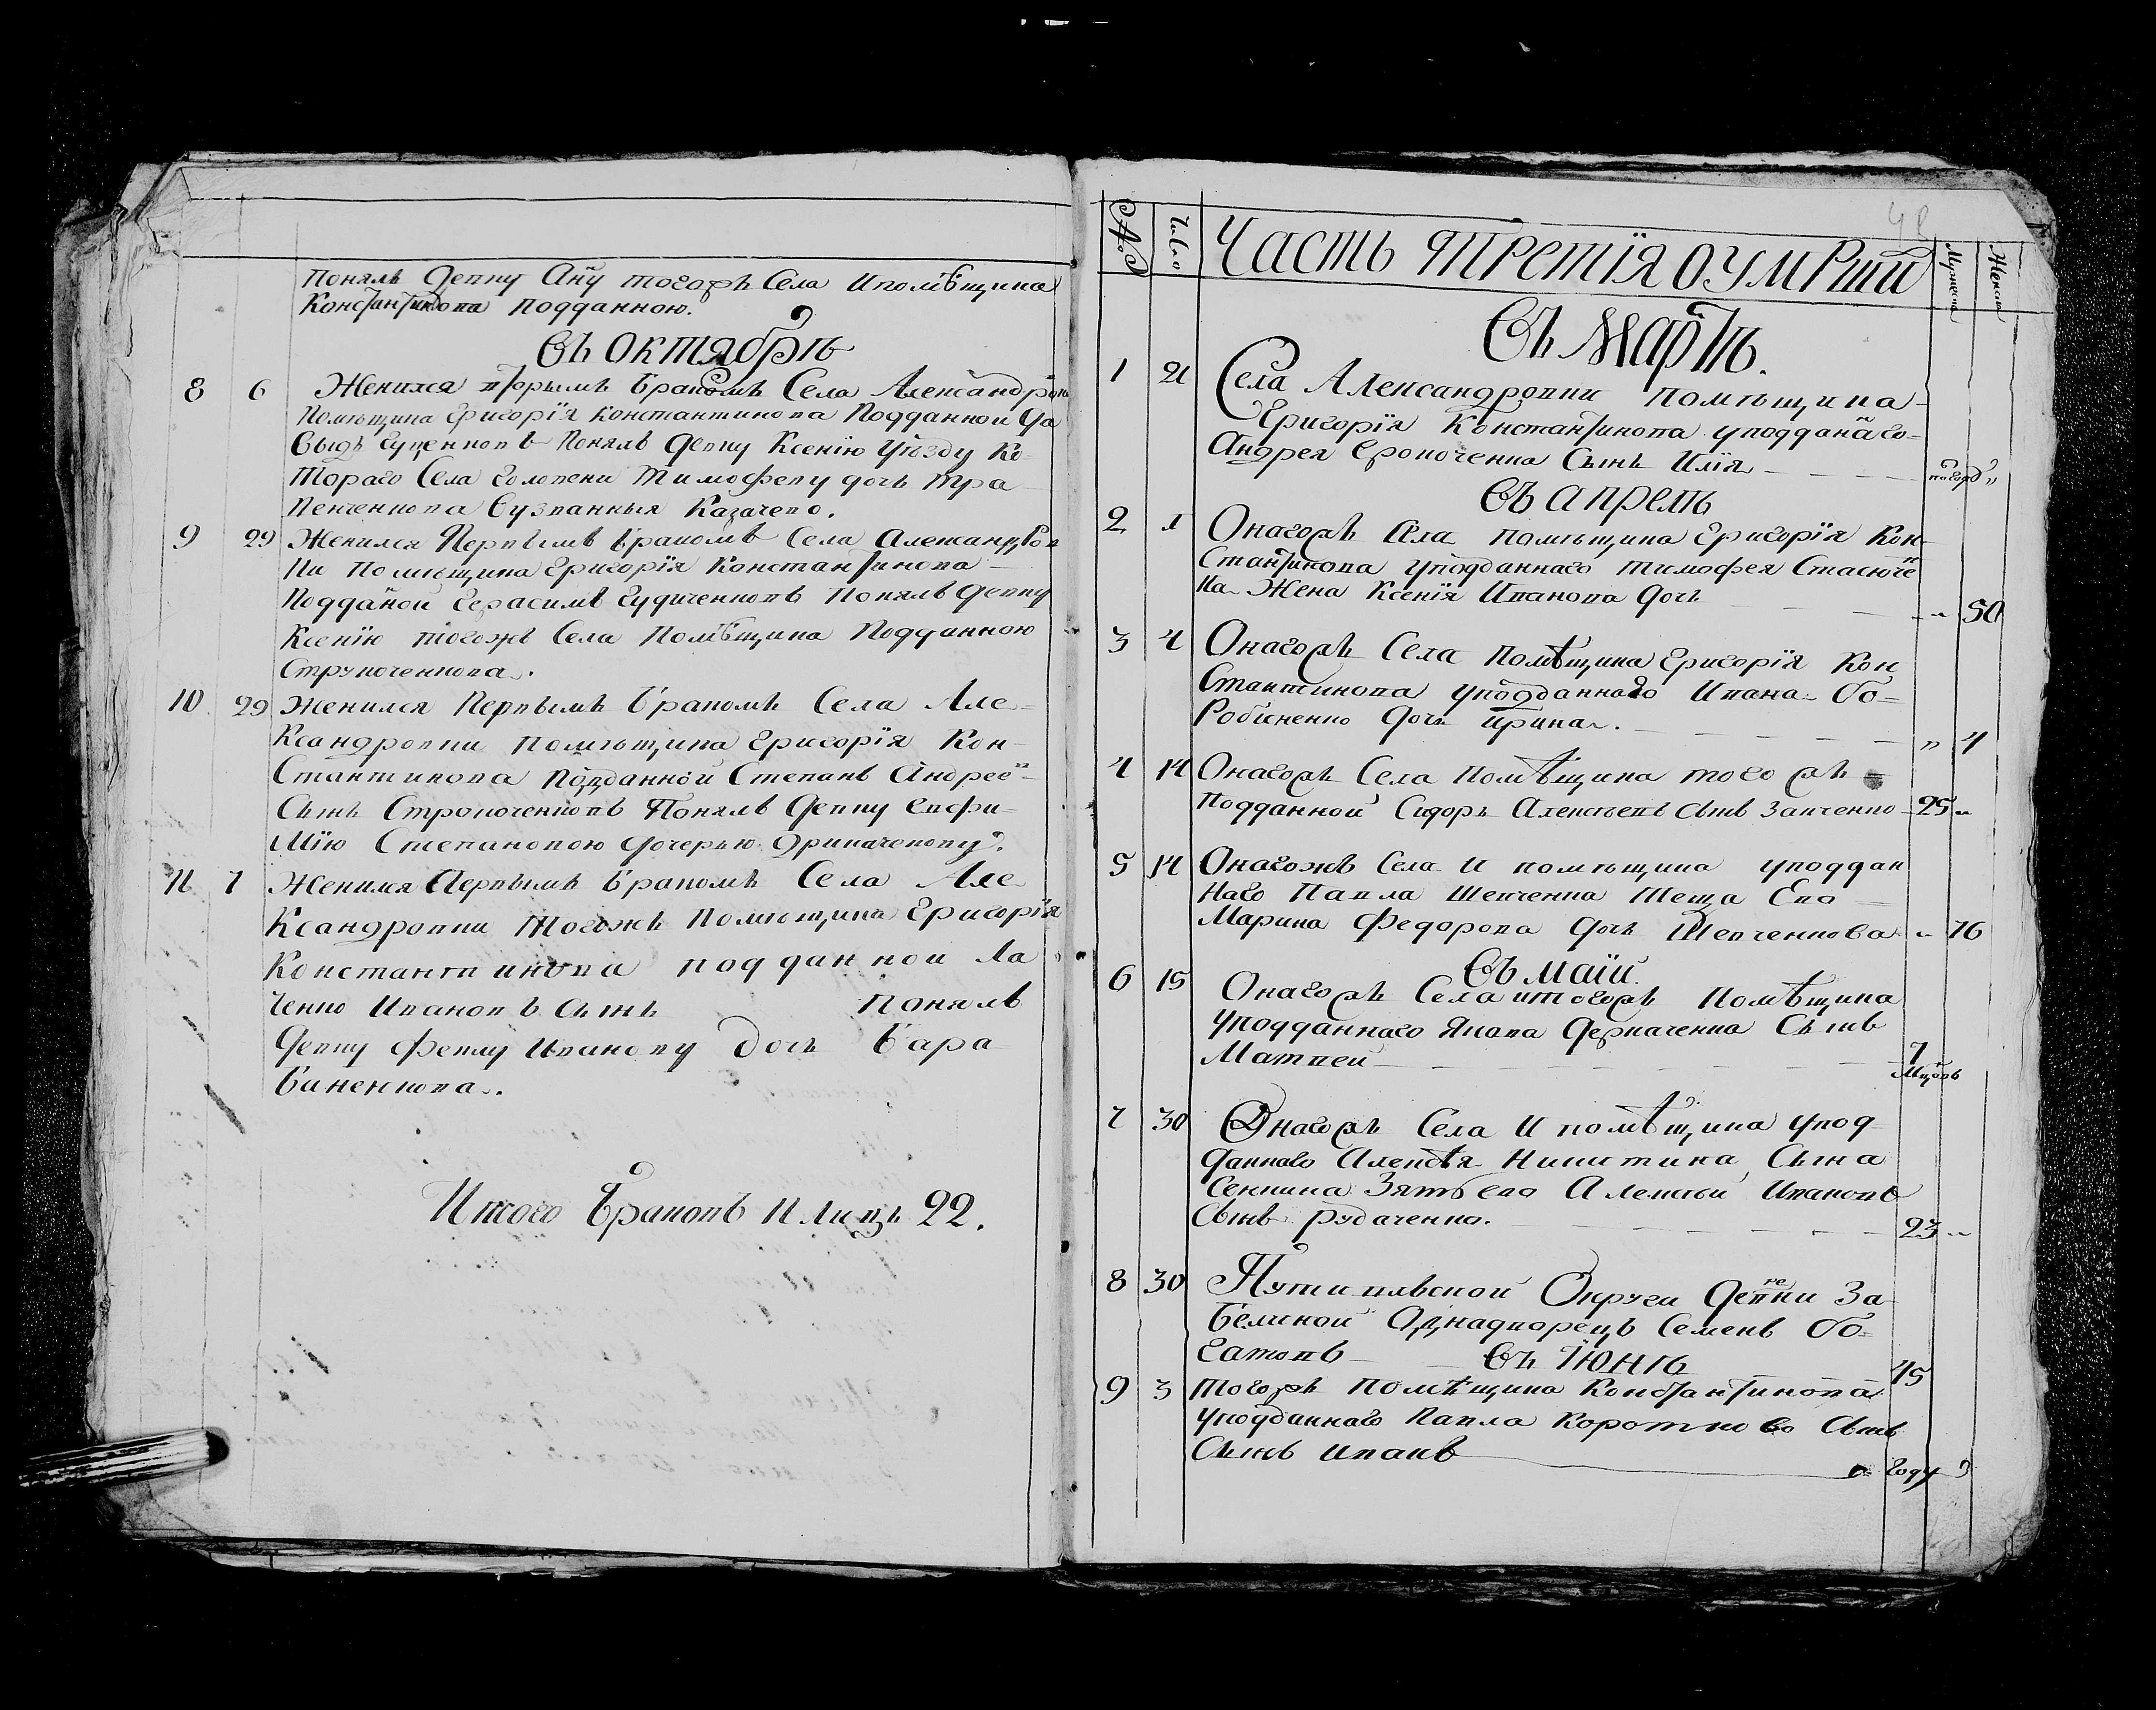 Понялъ девку Анну тогожъ Села И помѣщика
Константинова подданною.
Въ Октябрѣ
8 6 Женился вторымъ бракомъ Села Александровки
Помѣщика Григорія Константинова Подданной Да
выдъ Гуценковъ Понялъ девку Ксенію Уѣзду Ко
тораго Села Голопени Тимофеву дочь Кра
венченкова бузванныя Казачево.
9 29 Женился Первымъ бракомъ Села Александров
ки Помѣщика Григорія Константинова
Подданой Герасимъ Гудиченковъ Понялъ девку
Ксенію тогожъ Села Помѣщика Подданною
Струкоченкова.
10 29 Женился Первымъ бракомъ Села Але
ксандровки помѣщика Григорія Кон
стантинова Подданной Степанъ Андреев
сынъ Строкоченковъ Понялъ девку Евфи
мію Степановою дочерью
11 7 Женился Первымъ бракомъ Села Але
ксандровки тогожъ Помѣщика Григорія
Константинова подданной Ла
ченко Ивановъ сынъ Понялъ
девку Феклу Иванову дочь Бара
биненкова.
Итого браковъ 11 лицъ 22.
№ Число Часть третія о умрши Мужеска Женска
Въ Мартѣ.
1 21 Села Александровки помѣщика
Григорія Константинова уподданаго
Андрея Ерокоченка Сынъ Илія
полгод "
Въ апрелѣ
2 1 Онагожъ Села помѣщика Григорія Кон
стантинова уподданнаго Тимофея Стасючен
ка Жена Ксенія Иванова дочь " 50
3 4 Онагожъ Села Помѣщика Григорія Кон
стантинова уподданнаго Ивана Бо
робиненко дочь Ирина. " 4
4 14 Онагожъ Села Помѣщика тогожъ
подданной Сидоръ Алексѣевъ сынъ Заиченко 25 "
5 14 Онагожъ Села И помѣщика уподдан
наго Павла Шевченка Теща Ево
Марина Федорова дочь Шевченкова " 76
Въ маіи
6 15 Онагожъ Села итогожъ Помѣщика
уподданнаго Якова Деркаченка Сынъ
Матвей 7
мцовъ
7 30 Онагожъ Села И помѣщика упод
даннаго Алексѣя Никитина Сына
Сенкина Зять ево Алексѣй Ивановъ
Сынъ Рудаченко. 23 "
8 30 Путивльской Округи Деревни За
белиной Однадворецъ Семенъ Бо
гатовъ 45
Въ Іюнѣ
9 3 Тогожъ помѣщика Константинова
уподданнаго Павла Коротково сынъ
Сынъ Иванъ году "